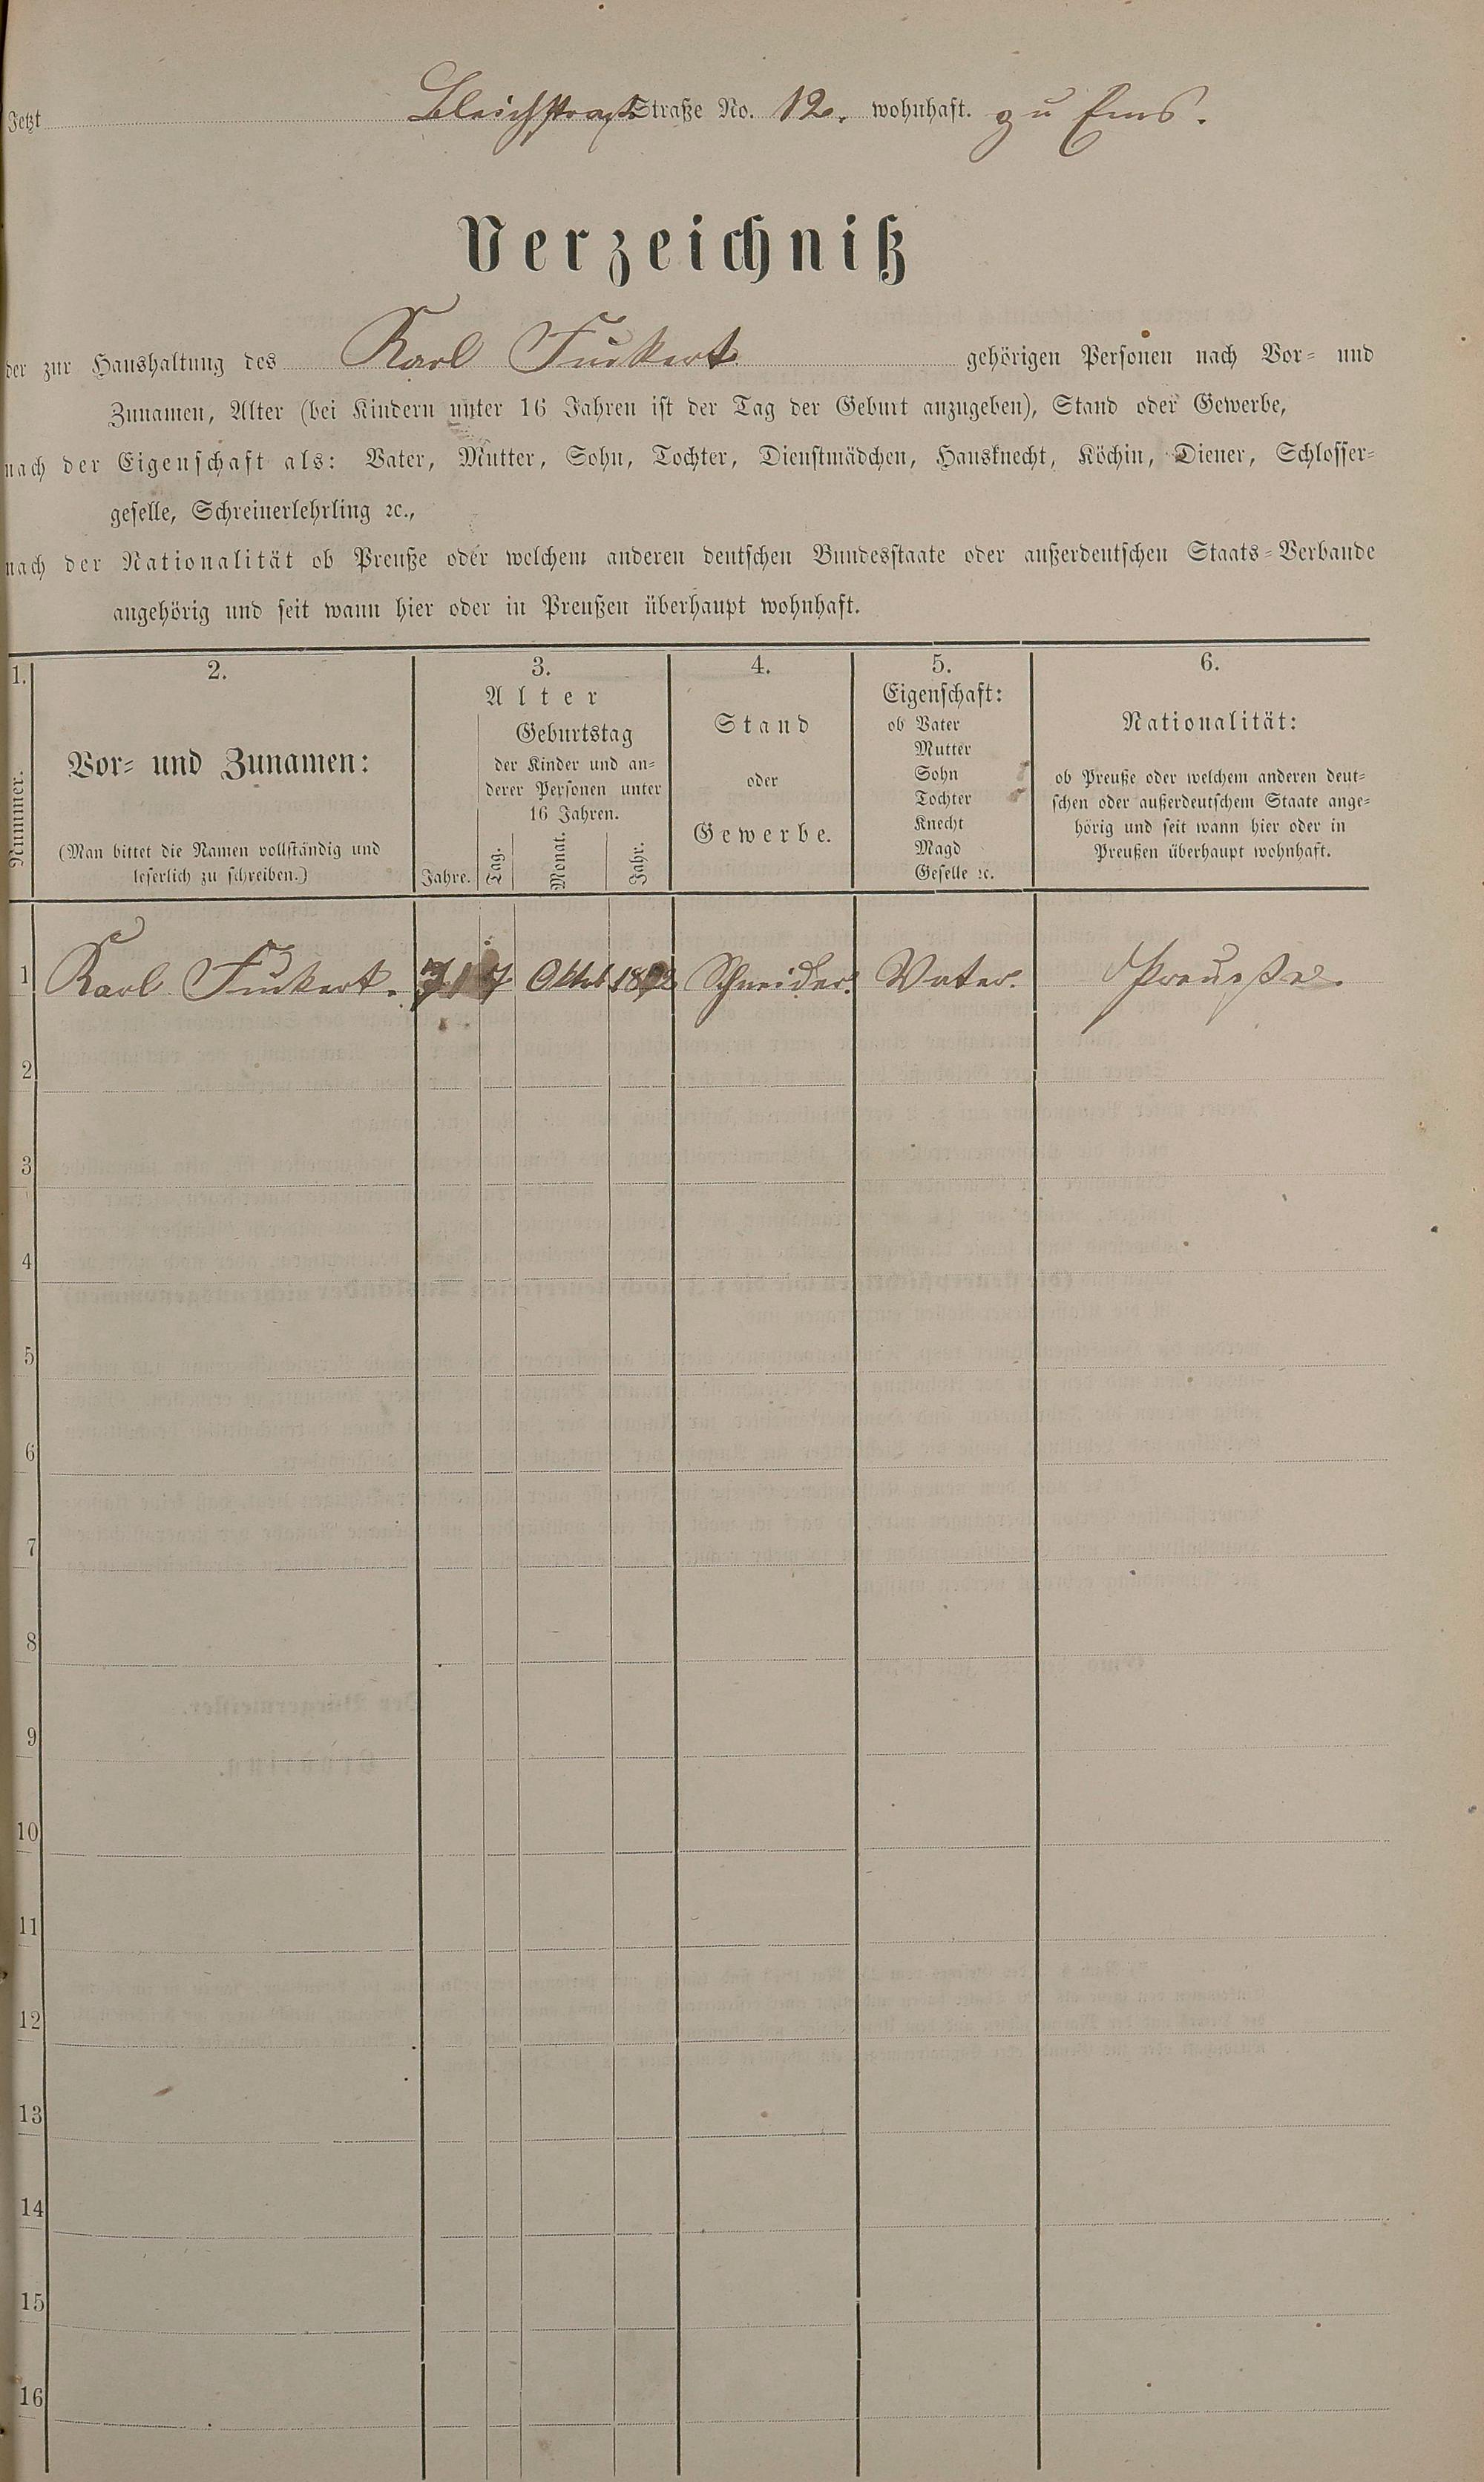 Jetzt Bleichstraße Straße No. 12. wohnhaft. zu Ems.
Verzeichniß
der zur Haushaltung des Karl Fuckert gehörigen Personen nach Vor- und
Zunamen, Alter (bei Kindern unter 16 Jahren ist der Tag der Geburt anzugeben), Stand oder Gewerbe,
nach der Eigenschaft als: Vater, Mutter, Sohn, Tochter, Dienstmädchen, Hausknecht, Köchin, Diener, Schlosser-
geselle, Schreinerlehrling ꝛc.,
nach der Nationalität ob Preuße oder welchem anderen deutschen Bundesstaate oder außerdeutschen Staats-Verbande
angehörig und seit wann hier oder in Preußen überhaupt wohnhaft.
1.
Nummer.
2.
Vor- und Zunamen:
(Man bittet die Namen vollständig und
leserlich zu schreiben.)
3.
Alter
Jahre.
Geburtstag
der Kinder und an-
derer Personen unter
16 Jahren.
Tag.
Monat.
Jahr.
4.
Stand
oder
Gewerbe.
5.
Eigenschaft:
ob Vater
Mutter
Sohn
Tochter
Knecht
Magd
Geselle ꝛc.
6.
Nationalität:
ob Preuße oder welchem anderen deut-
schen oder außerdeutschem Staate ange-
hörig und seit wann hier oder in
Preußen überhaupt wohnhaft.
1 Karl Fuckert. Oktob. Schneider. Vater. Preuße.
2
3
4
5
6
7
8
9
10
11
12
13
14
15
16